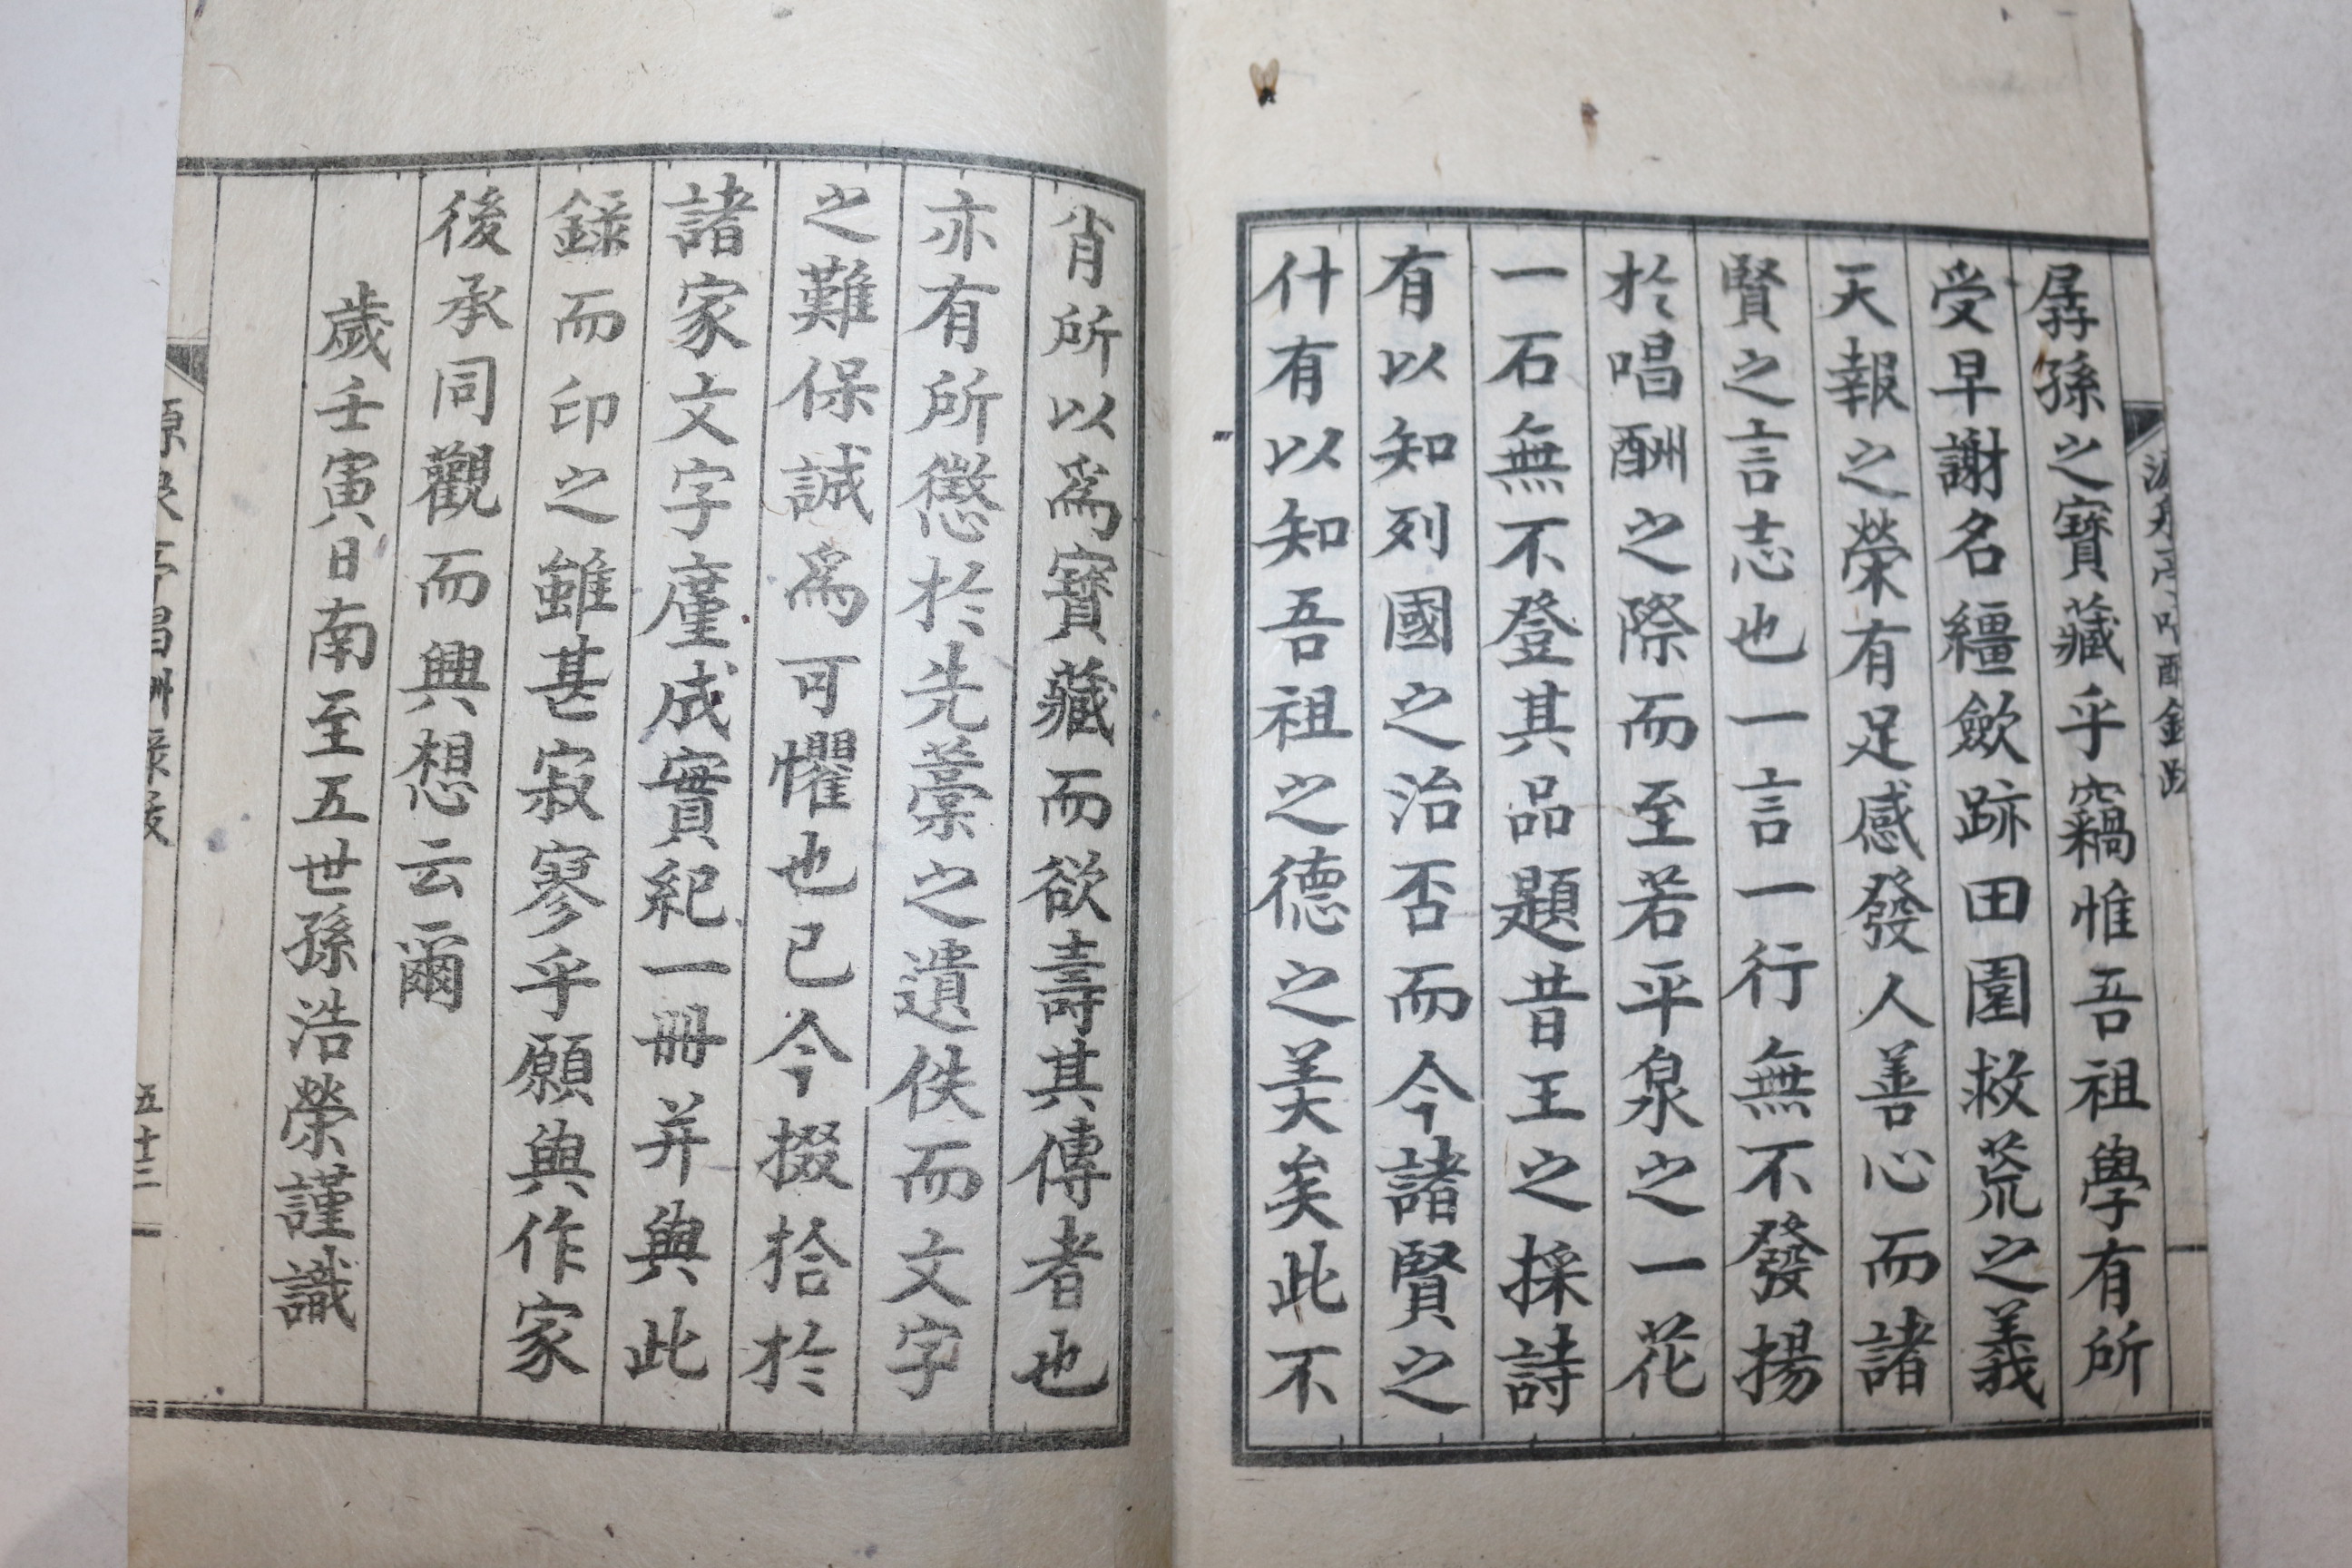 孱孫之寶藏乎竊惟吾祖學有所
受早謝名繮斂跡田園救荒之義
天報之榮有足感發人善心而諸
賢之言志也一言一行無不發揚
於唱酬之際而至若平泉之一花
一石無不登其品題昔王之採詩
有以知列國之治否而今諸賢之
什有以知吾祖之德之美矣此不
肖所以爲寶藏而欲壽其傳者也
亦有所懲於先藁之遺佚而文字
之難保誠爲可懼也已今掇拾於
諸家文字廑成實紀一冊并與此
錄而印之雖甚寂寥乎願與作家
後承同觀而興想云爾
歲壬寅日南至五世孫浩榮謹識